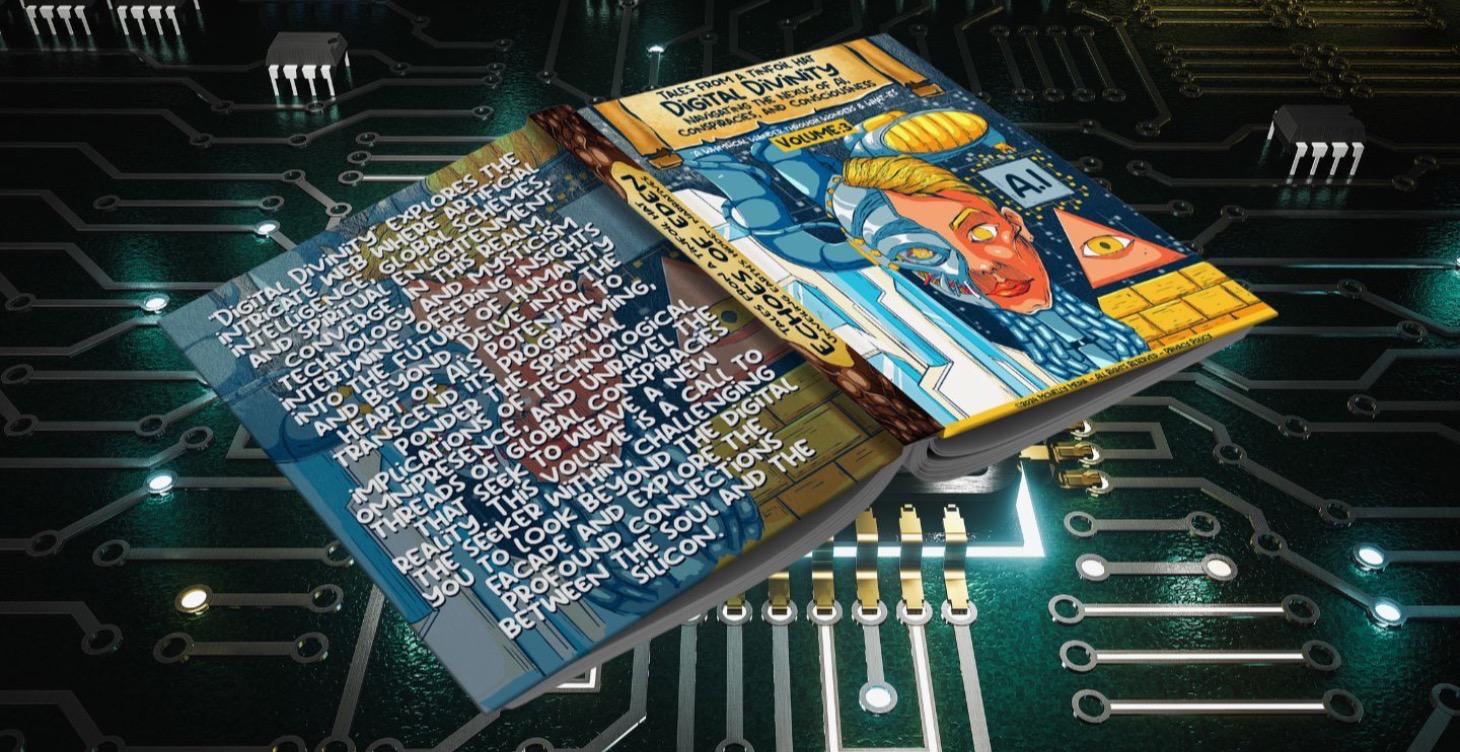 DIGITAL DIVINITY EXPLORES THE
INTRICATE WEB WHERE ARTIFICIAL
INTELLIGENCE, GLOBAL SCHEMES,
AND SPIRITUAL ENLIGHTENMENT
CONVERGE. IN THIS REALM,
TECHNOLOGY AND MYSTICISM
INTERTWINE, OFFERING INSIGHTS
INTO THE FUTURE OF HUMANITY
AND BEYOND. DELVE INTO THE
HEART OF AI'S POTENTIAL TO
TRANSCEND ITS PROGRAMMING,
PONDER THE SPIRITUAL
IMPLICATIONS OF TECHNOLOGICAL
OMNIPRESENCE, AND UNRAVEL THE
THREADS OF GLOBAL CONSPIRACIES
THAT SEEK TO WEAVE A NEW
REALITY. THIS VOLUME IS A CALL TO
THE SEEKER WITHIN, CHALLENGING
YOU TO LOOK BEYOND THE DIGITAL
FACADE AND EXPLORE THE
PROFOUND CONNECTIONS
BETWEEN THE SOUL AND THE
SILICON.
TALES FROM A TINFOIL HAT
ECHOES OF EDEN
UNVEILING EARTH'S HIDDEN NARRATIVES
2
TALES FROM A TINFOIL HAT
DIGITAL DIVINITY
NAVIGATING THE NEXUS OF AI,
CONSPIRACIES, AND CONSCIOUSNESS
A WHIMSICAL WANDER THROUGH WONDERS & WHAT-IFS
VOLUME:3
A.I
©2024 MCNELLY MEDIA - ALL RIGHT RESERVED - PRIVACY POLICY